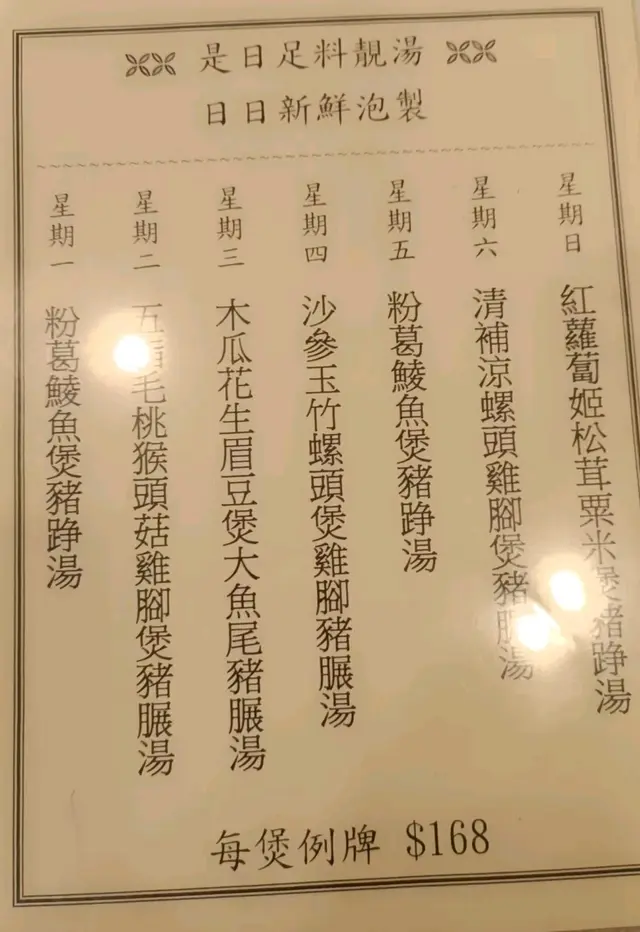 是日足料靚湯
日日新鮮泡製
星期一
粉葛鯪魚煲豬踭湯
星期二
五毛桃猴頭菇雞腳煲豬𦟌湯
星期三
木瓜花生眉豆煲大魚尾豬𦟌湯
星期四
沙參玉竹螺頭煲雞腳豬𦟌湯
星期五
粉葛鯪魚煲豬踭湯
星期六
清補涼螺頭雞腳煲豬湯
星期日
紅蘿蔔姬松茸粟米煲豬踭湯
每煲例牌 $168